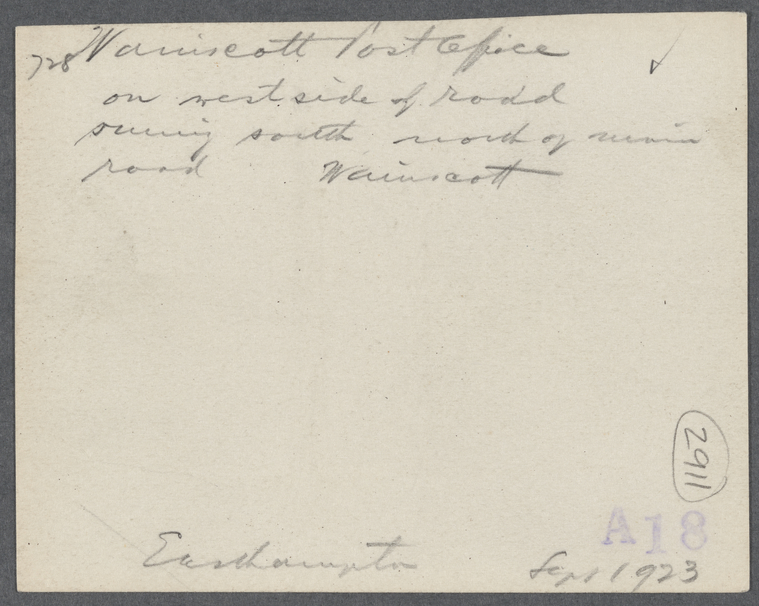 728 Wainscott Post Office
on west side of road
runing south north of main
road Wainscott
2911
A18
Easthampton Sept 1923